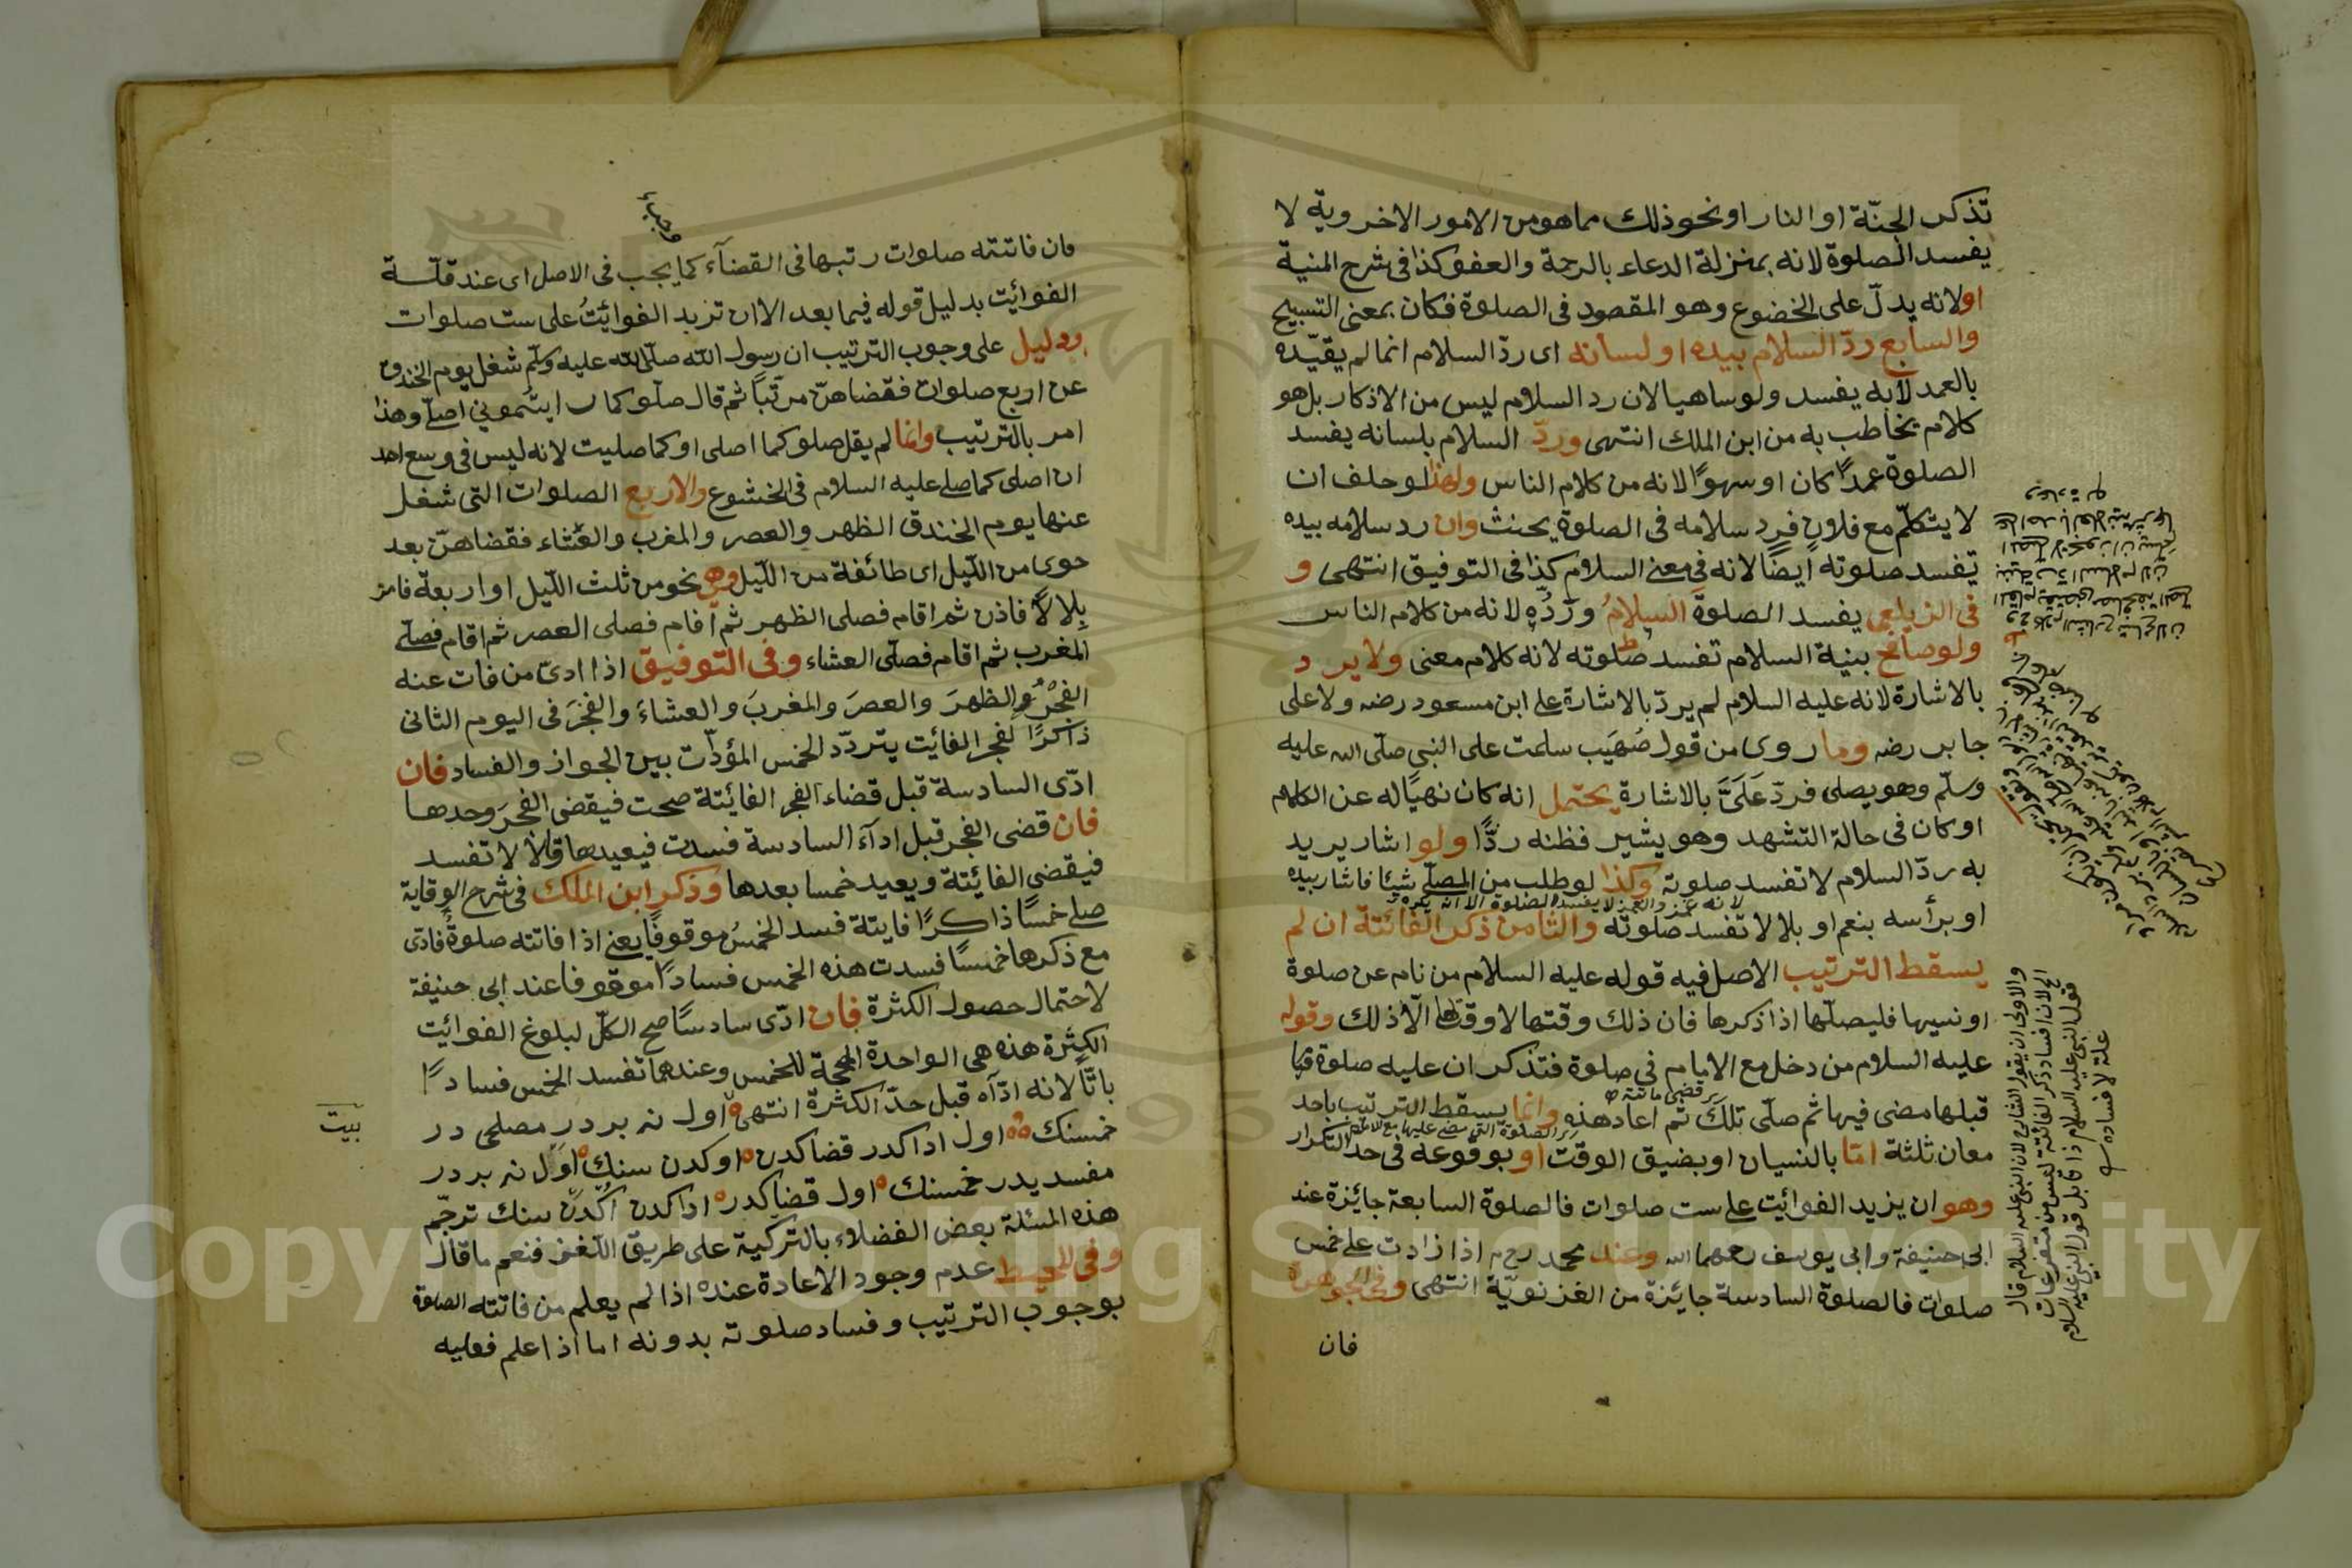 تذكر الجنّة او النار او نحو ذلك مما هو من الامور الاخروية لا
يفسد الصلوة لانه بمنزلة الدعاء بالرحمة والعفو كذا فى شرح المنية
اولانه يدلّ على الخضوع وهو المقصود فى الصلوة فكان بمعنى التسبيح
والسابع ردّ السلام بيده او لسانه اى ردّ السلام انما لم يقيّده
بالعمد لانه يفسد ولو ساهيا لان رد السلام ليس من الاذكار بل هو
كلام يخاطب به من ابن الملك انتهى وردّ السلام بلسانه يفسد
الصلوة عمدًا كان او سهوًا لانه من كلام الناس ولهذا لو حلف ان
لا يتكلّم مع فلان فرد سلامه فى الصلوة يحنث وان رد سلامه بيده
تفسد صلوته ايضًا لانه فى معنى السلام كذا فى التوفيق انتهى و
فى الزيلعى يفسد الصلوةَ السلامُ وردُّه لانه من كلام الناس
ولو صافح بنية السلام تفسد صلوته لانه كلام معنى ولا يرد
بالاشارة لانه عليه السلام لم يردّ بالاشارة على ابن مسعود رضه ولا على
جابر رضه وما روى من قول صُهَيب سلمت على النبى صلّى الله عليه
وسلّم وهو يصلى فردّ عَلَىَّ بالاشارة يحتمل انه كان نهيًا له عن الكلام
او كان فى حالة التشهد وهو يشير فظنه ردًّا ولو اشار يريد
به ردّ السلام لا تفسد صلوته وكذا لو طلب من المصلّى شيئا فاشار بيده
لانه غمز والغمز لا يفسد الصلوة الا انه يكره
او برأسه بنعم او بلا لا تفسد صلوته والثامن ذكر الفائتة ان لم
يسقط الترتيب الاصل فيه قوله عليه السلام من نام عن صلوة
او نسيها فليصلّها اذا ذكرها فان ذلك وقتها لا وقت لها الّا ذلك وقوله
عليه السلام من دخل مع الامام فى صلوة فتذكر ان عليه صلوة
قبلها مضى فيها ثم صلّى تلك ثم اعاد هذه وانما يسقط الترتيب باحد
معان ثلثة امّا بالنسيان او بضيق الوقت او بوقوعه فى حد التكرار
وهو ان يزيد الفوائيت على ست صلوات فالصلوة السابعة جايزة عند
ابى حنيفة وابى يوسف رحهما الله وعند محمد رح اذا زادت على خمس
صلوات فالصلوة السادسة جايزة من الغزنويّة انتهى وفى الجوهرة
فان
والاولى ان يقول الشارع لان النبى عليه السلام قال
الخ لان افساد ذكر الفائتة ليس من متفرعات
قول النبى عليه السلام ذا قابل قول النبى عليه السلام
علة لافساده
واجبا
فان فاتته صلوات رتبها فى القضآء كما يجب فى الاصل اى عند قلّة
الفوائيت بدليل قوله فيما بعد الا ان تزيد الفوائيتُ على ست صلوات
ودليل على وجوب الترتيب ان رسول الله صلّى الله عليه وسلّم شغل يوم الخندق
عن اربع صلوات فقضاهنّ مرتّباً ثم قال صلّو كما رايتمونى اصلّى وهذا
امر بالترتيب وانما لم يقل صلو كما اصلى او كما صليت لانه ليس فى وسع احد
ان اصلى كما صلى عليه السلام فى الخشوع والاربع الصلوات التى شغل
عنها يوم الخندق الظهر والعصر والمغرب والعشاء فقضاهنّ بعد
حوى من اللّيل اى طائفة من اللّيل وهى نحو من ثلث اللّيل او اربعة فامر
بلالًا فاذن ثم اقام فصلى الظهر ثم اقام فصلى العصر ثم اقام فصلّى
المغرب ثم اقام فصلّى العشاء وفى التوفيق اذا ادىّ من فات عنه
الفجرُ والظهرَ والعصرَ والمغربَ والعشاءَ والفجرَ فى اليوم الثانى
ذاكرًا لفجر الفائيت يتردّد الخمس المؤدّت بين الجواز والفساد فان
ادّى السادسة قبل قضاء الفجر الفائيتة صحت فيقضى الفجرَ وحدها
فان قضى الفجر قبل ادآء السادسة فسدت فيعيدها وقالا لا تفسد
فيقضى الفائيتة ويعيد خمسا بعدها وذكر ابن الملك فى شرح الوقاية
صلى خمسًا ذاكرًا فايتة فسد الخمسُ موقوفًا يعنى اذا فاتته صلوةٌ فادّى
مع ذكرها خمسًا فسدت هذه الخمس فسادًا موقوفا عند ابى حنيفة
لاحتمال حصول الكثرة فان ادّى سادسًا صح الكلّ لبلوغ الفوائيت
الكثرة هذه هى الواحدة المصححة للخمس وعندهما تفسد الخمس فسادًا
باتًّا لانه ادّاه قبل حدّ الكثرة انتهى اول نه بردر مصلحى در
خمسنك اول اداكدر قضاكدن اوكدن سنك اول نه بردر
مفسديدر خمسنك اول قضاكدر اداكدن اكدن سنك ترجّم
هذه المسئلة بعض الفضلاء بالتركية على طريق اللّغز فنعم ما قال
وفى المحيط عدم وجود الاعادة عنده اذا لم يعلم من فاتته الصلوة
بوجوب الترتيب وفساد صلوته بدونه اما اذا علم فعليه
بيت
Copyright © King Saud University